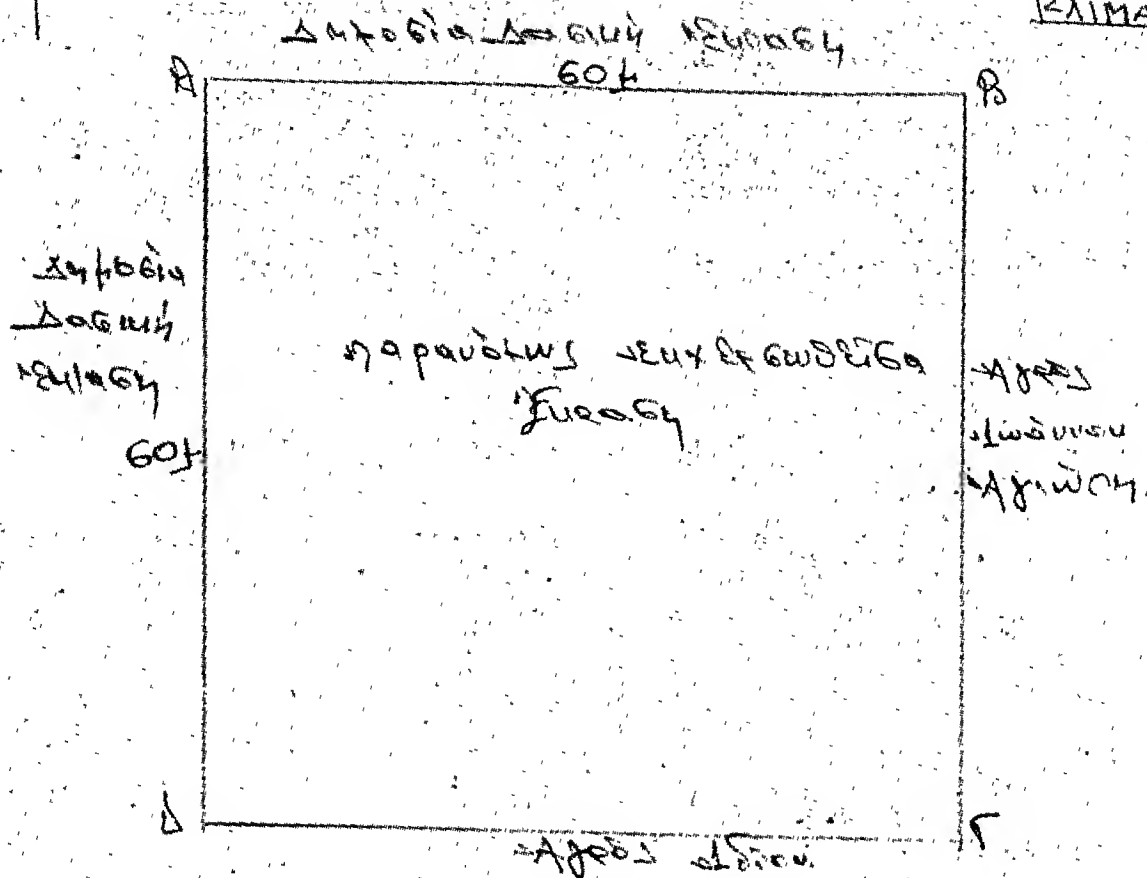 ΚΛΙΜΑ
Δημοσία Δασική Έκταση
60μ
Α
Β
Δημοσία
Δασική
Έκταση
60μ
παρανόμως εκχερσωθείσα
Έκταση
Αγρός
Ιωάννου
Δ
Γ
Αγρός ιδίου